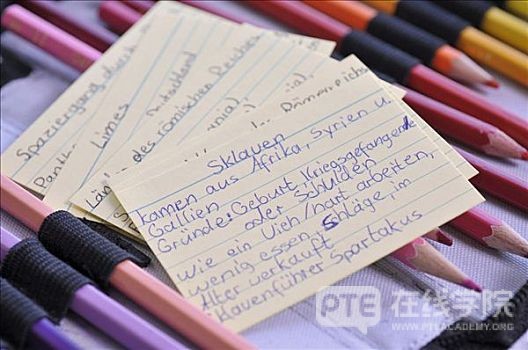 Spaziergang durch
Limes
Deutschland
des römischen Reiches
Römerreichs
Sklaven
kamen aus Afrika, Syrien u.
Gallien
Gründe: Geburt, Kriegsgefangende
oder Schulden
wie ein Vieh/hart arbeiten,
wenig essen, Schläge, im
Alter verkauft
Sklavenführer Spartakus
PTE 在线学院
WWW.PTEACADEMY.ORG